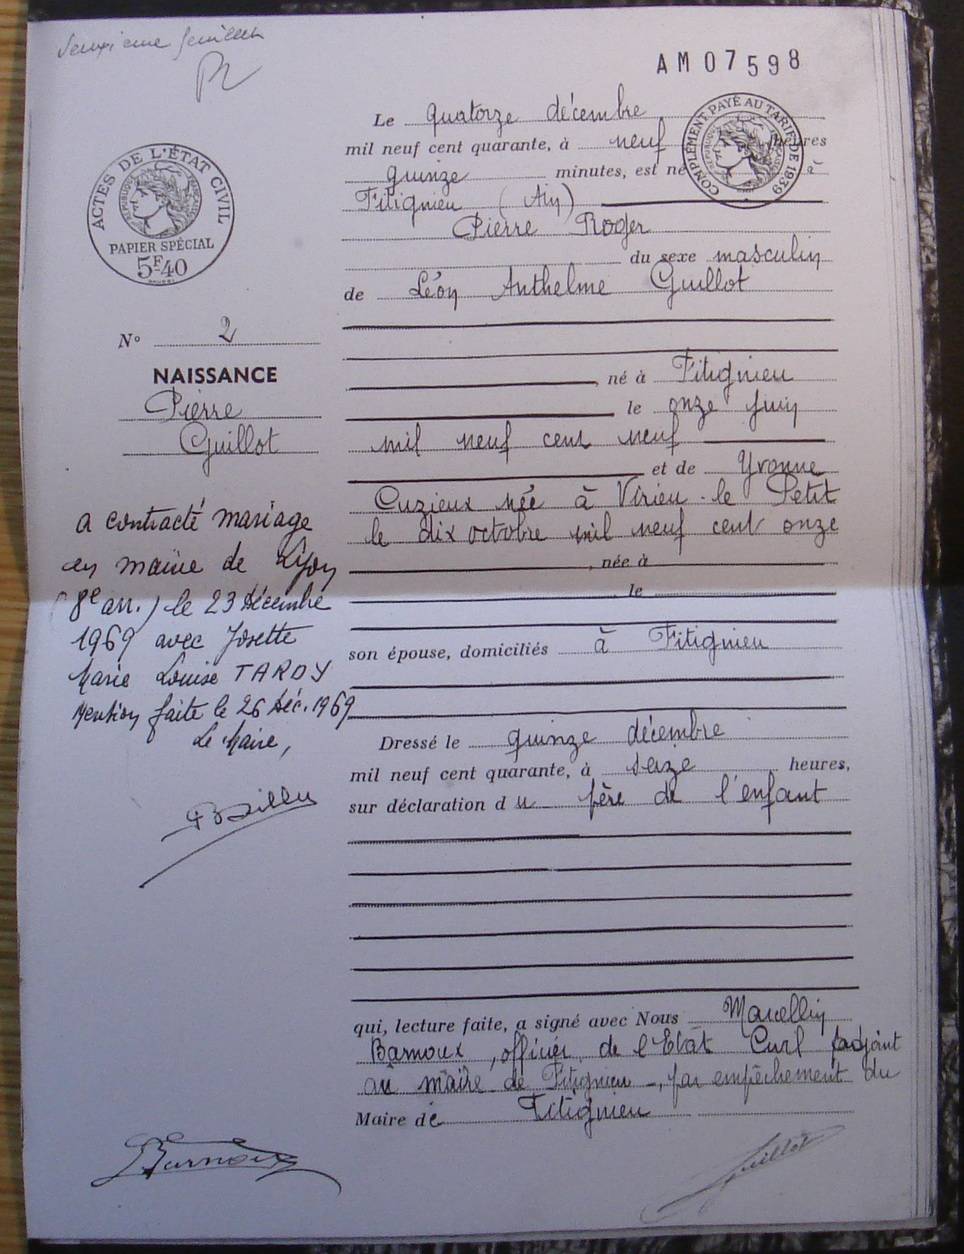 Deuxième feuillet
AM07598
ACTES DE L'ÉTAT CIVIL
RÉPUBLIQUE FRANÇAISE
PAPIER SPÉCIAL
5F40
COMPLÉMENT PAYÉ AU TARIF DE 1939
N° 2
NAISSANCE
Pierre
Guillot
a contracté mariage
en mairie de Lyon
(8e arr.) le 23 décembre
1969 avec Josette
Marie Louise TARDY
Mention faite le 26 Déc. 1969
Le Maire,
Le quatorze décembre
mil neuf cent quarante, à neuf heures
quinze minutes, est né à
Fitignieu (Ain)
Pierre Roger
du sexe masculin
de Léon Anthelme Guillot
, né à Fitignieu
le onze juin
mil neuf cent neuf
et de Yvonne
Cuzieux née à Virieu-le-Petit
le dix octobre mil neuf cent onze
, née à
le
son épouse, domiciliés à Fitignieu
Dressé le quinze décembre
mil neuf cent quarante, à seize heures,
sur déclaration du père de l'enfant
qui, lecture faite, a signé avec Nous Marcellin
Barnoux, officier de l'Etat Civil adjoint
au maire de Fitignieu -, par empêchement du
Maire de Fitignieu
Barnoux
Guillot